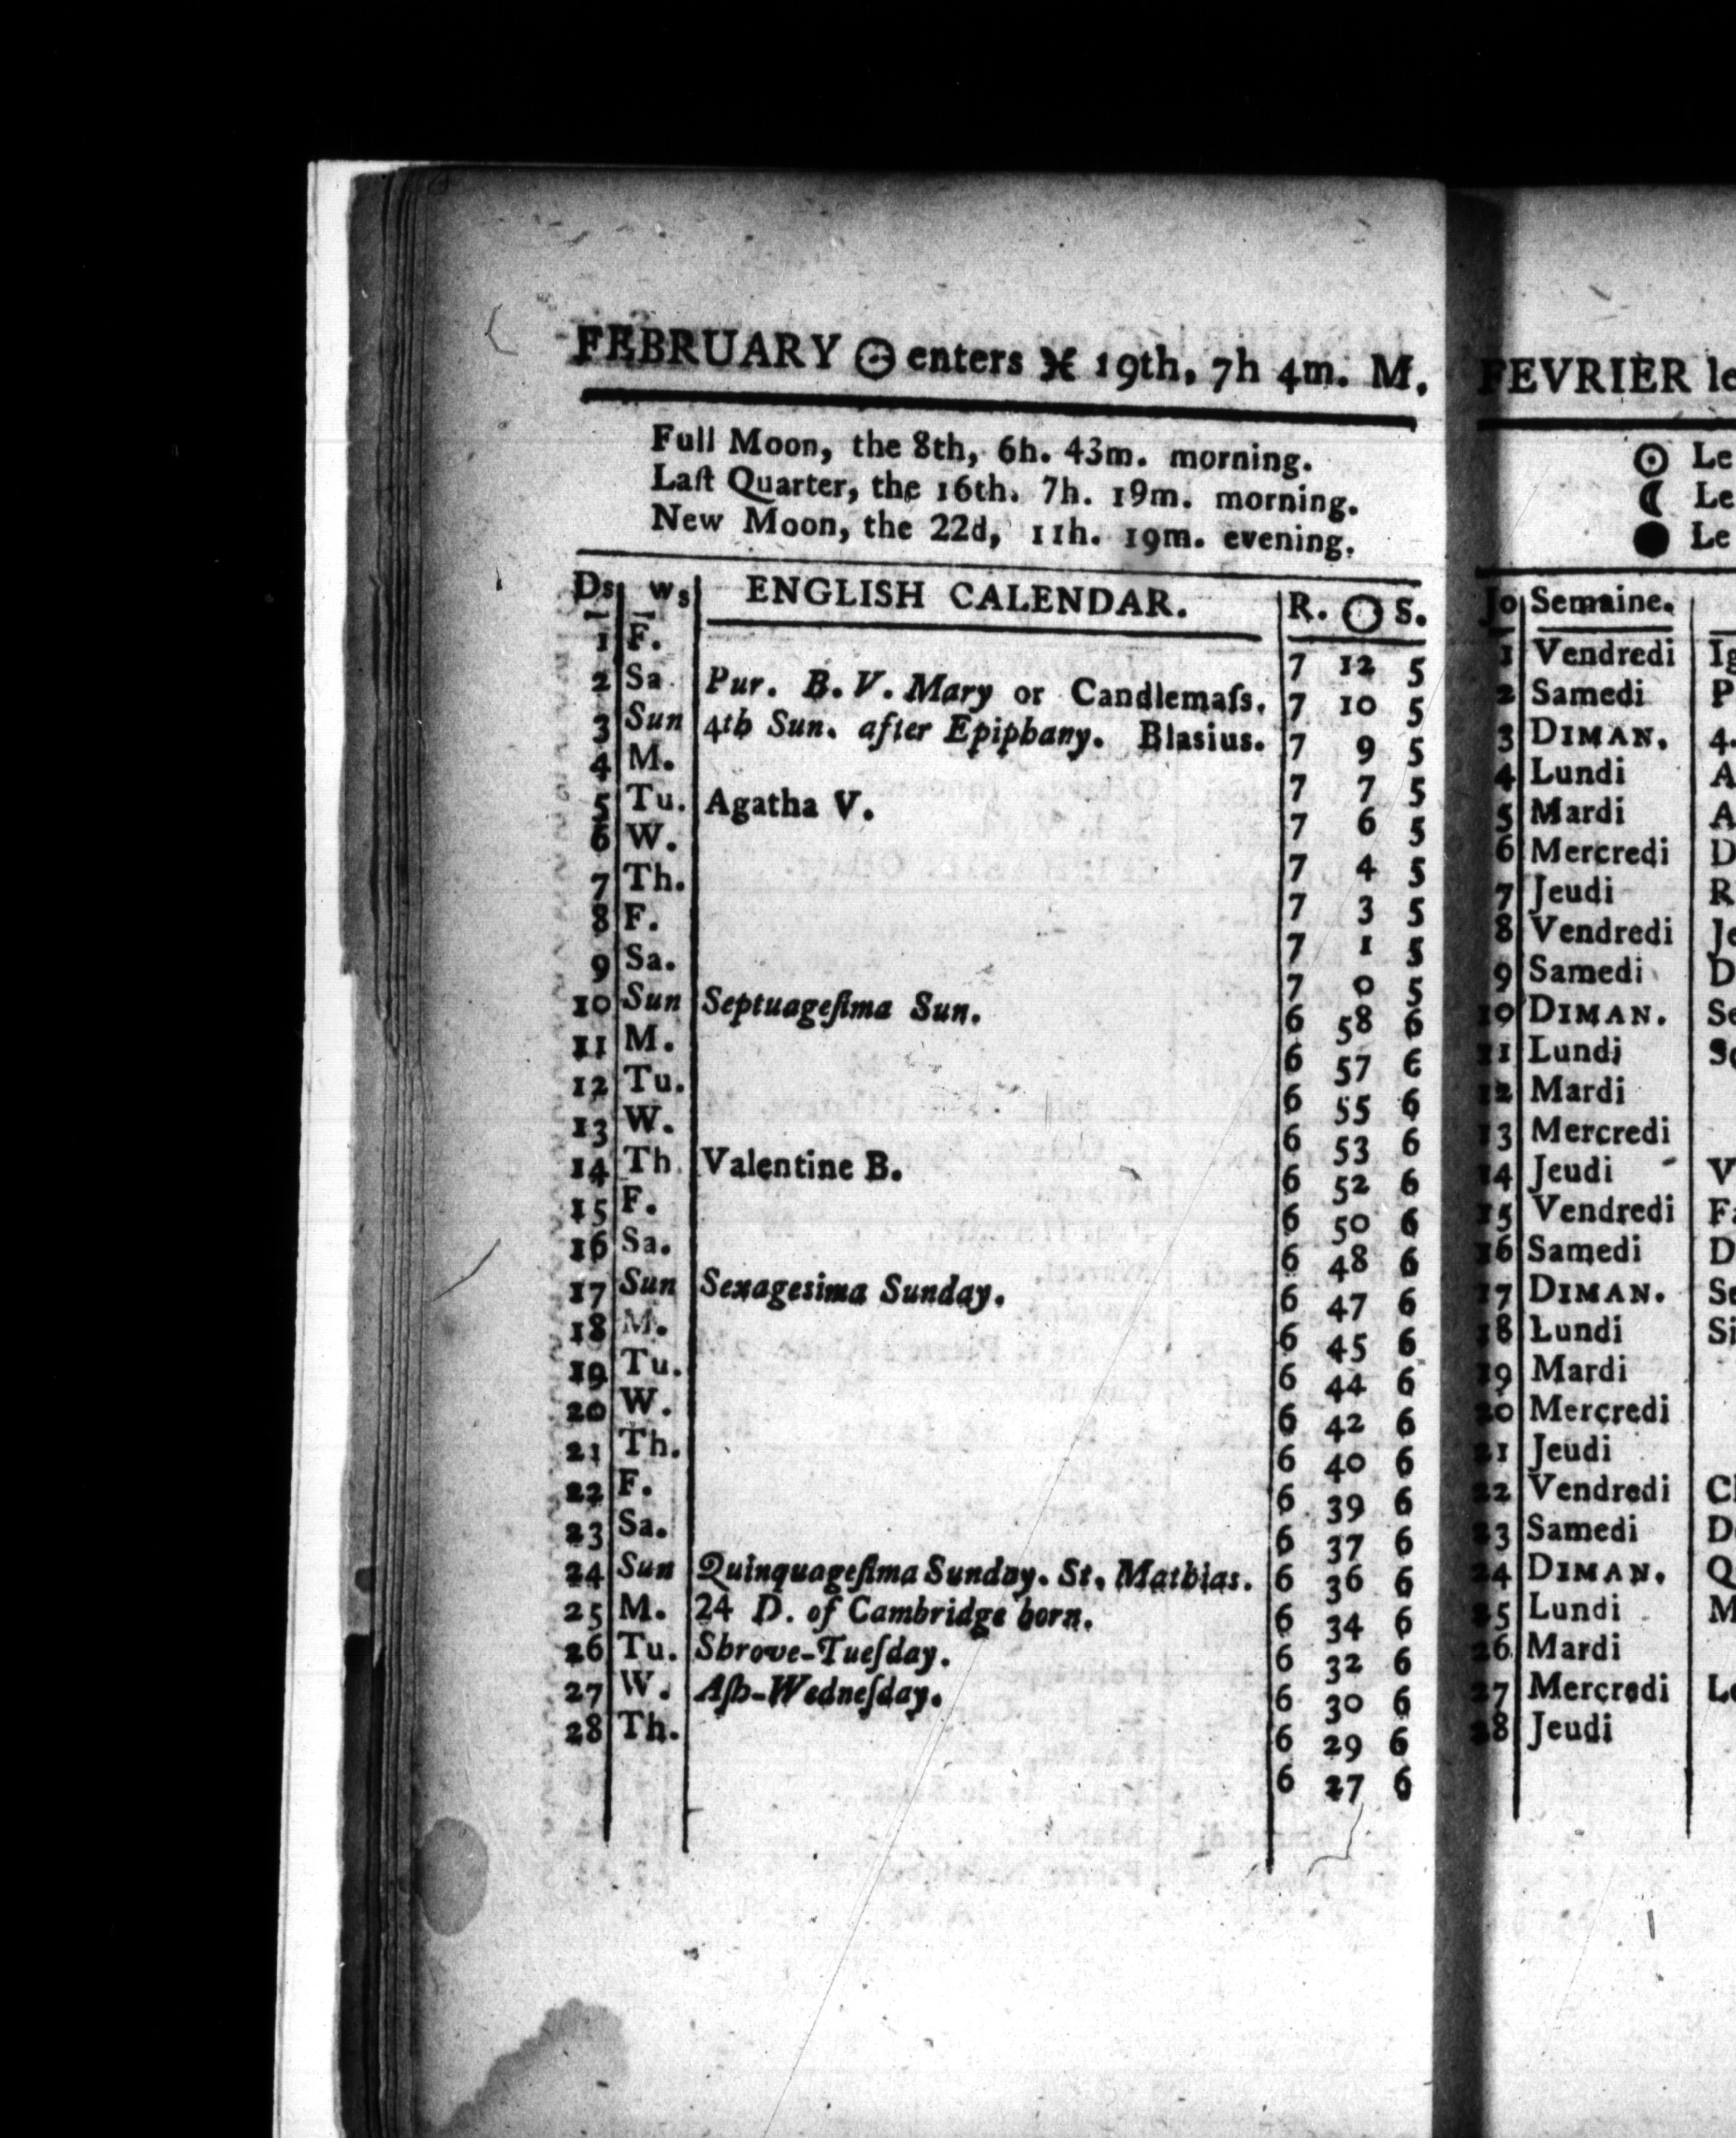 FEBRUARY ☉ enters ♓ 19th, 7h 4m. M.
Full Moon, the 8th, 6h. 43m. morning.
Laſt Quarter, the 16th. 7h. 19m. morning.
New Moon, the 22d, 11h. 19m. evening.
Ds ws ENGLISH CALENDAR. R. ☉ S.
1 F. 7 12 5
2 Sa Pur. B. V. Mary or Candlemaſs. 7 10 5
3 Sun 4th Sun. after Epiphany. Blasius. 7 9 5
4 M. 7 7 5
5 Tu. Agatha V. 7 6 5
6 W. 7 4 5
7 Th. 7 3 5
8 F. 7 1 5
9 Sa. 7 0 5
10 Sun Septuageſima Sun. 6 58 6
11 M. 6 57 6
12 Tu. 6 55 6
13 W. 6 53 6
14 Th Valentine B. 6 52 6
15 F. 6 50 6
16 Sa. 6 48 6
17 Sun Sexagesima Sunday. 6 47 6
18 M. 6 45 6
19 Tu. 6 44 6
20 W. 6 42 6
21 Th. 6 40 6
22 F. 6 39 6
23 Sa. 6 37 6
24 Sun Quinquageſima Sunday. St. Mathias. 6 36 6
25 M. 24 D. of Cambridge born. 6 34 6
26 Tu. Shrove-Tueſday. 6 32 6
27 W. Aſh-Wedneſday. 6 30 6
28 Th. 6 29 6
6 27 6
FEVRIER le
☉ Le
☾ Le
● Le
Jo Semaine.
1 Vendredi Ig
2 Samedi P
3 DIMAN. 4.
4 Lundi A
5 Mardi A
6 Mercredi D
7 Jeudi R
8 Vendredi Je
9 Samedi D
10 DIMAN. Se
11 Lundi
12 Mardi
13 Mercredi
14 Jeudi V
15 Vendredi Fa
16 Samedi D
17 DIMAN. Se
18 Lundi Si
19 Mardi
20 Mercredi
21 Jeudi
22 Vendredi
23 Samedi
24 DIMAN. Q
25 Lundi M
26 Mardi
27 Mercredi
28 Jeudi